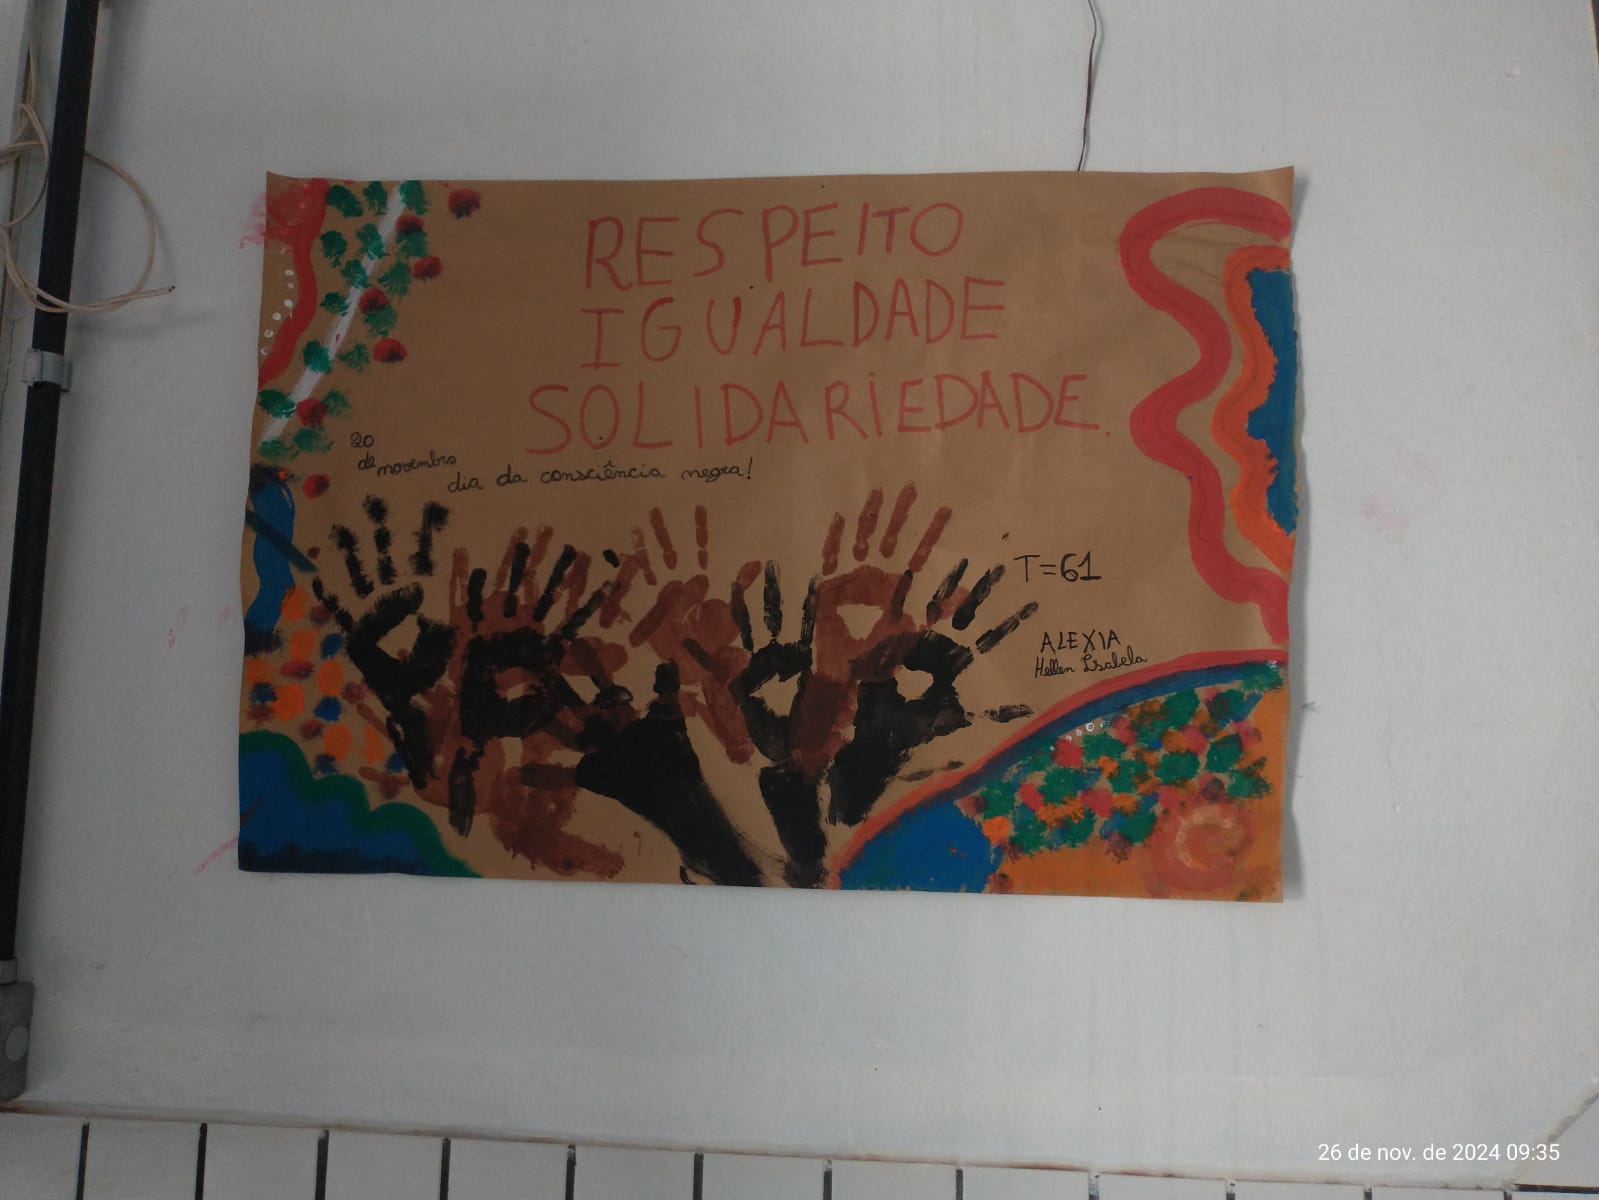 RESPEITO
IGUALDADE
SOLIDARIEDADE.
20
de novembro
dia da consciência negra!
T=61
ALEXIA
Hellen Isabela
26 de nov. de 2024 09:35